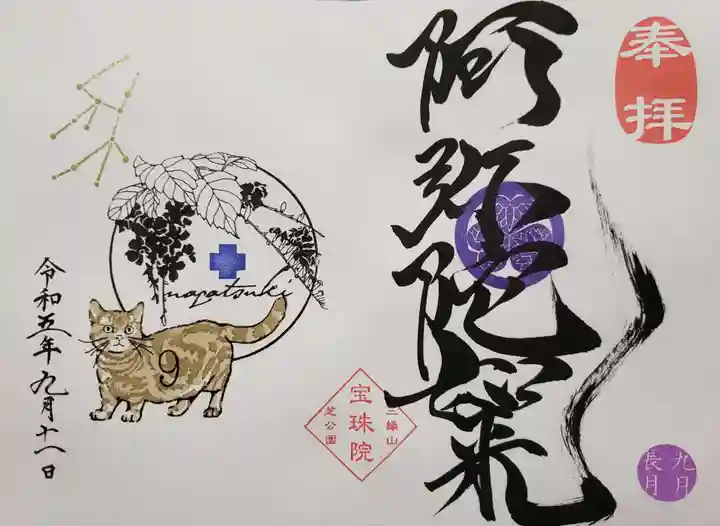 奉拝
阿弥陀如来
九月
長月
三縁山
宝珠院
芝公園
nagatsuki
9
令和五年九月